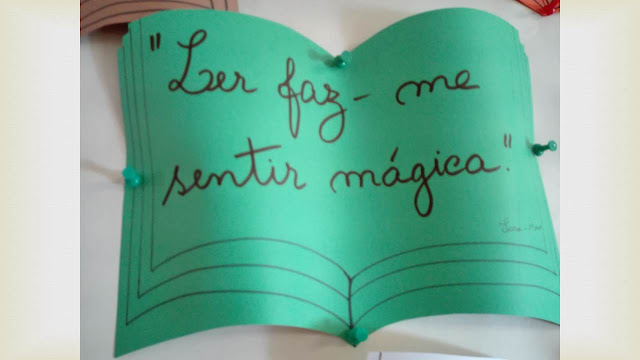 "Ler faz-me
sentir mágica."